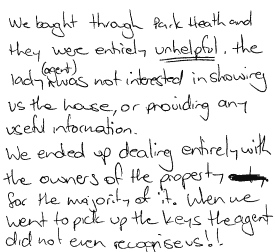 We bought through Park Heath and
they were entirely unhelpful, the
lady (agent) was not interested in showing
us the house, or providing any
useful information.
We ended up dealing entirely with
the owners of the property
for the majority of it. When we
went to pick up the keys the agent
did not even recognise us!!